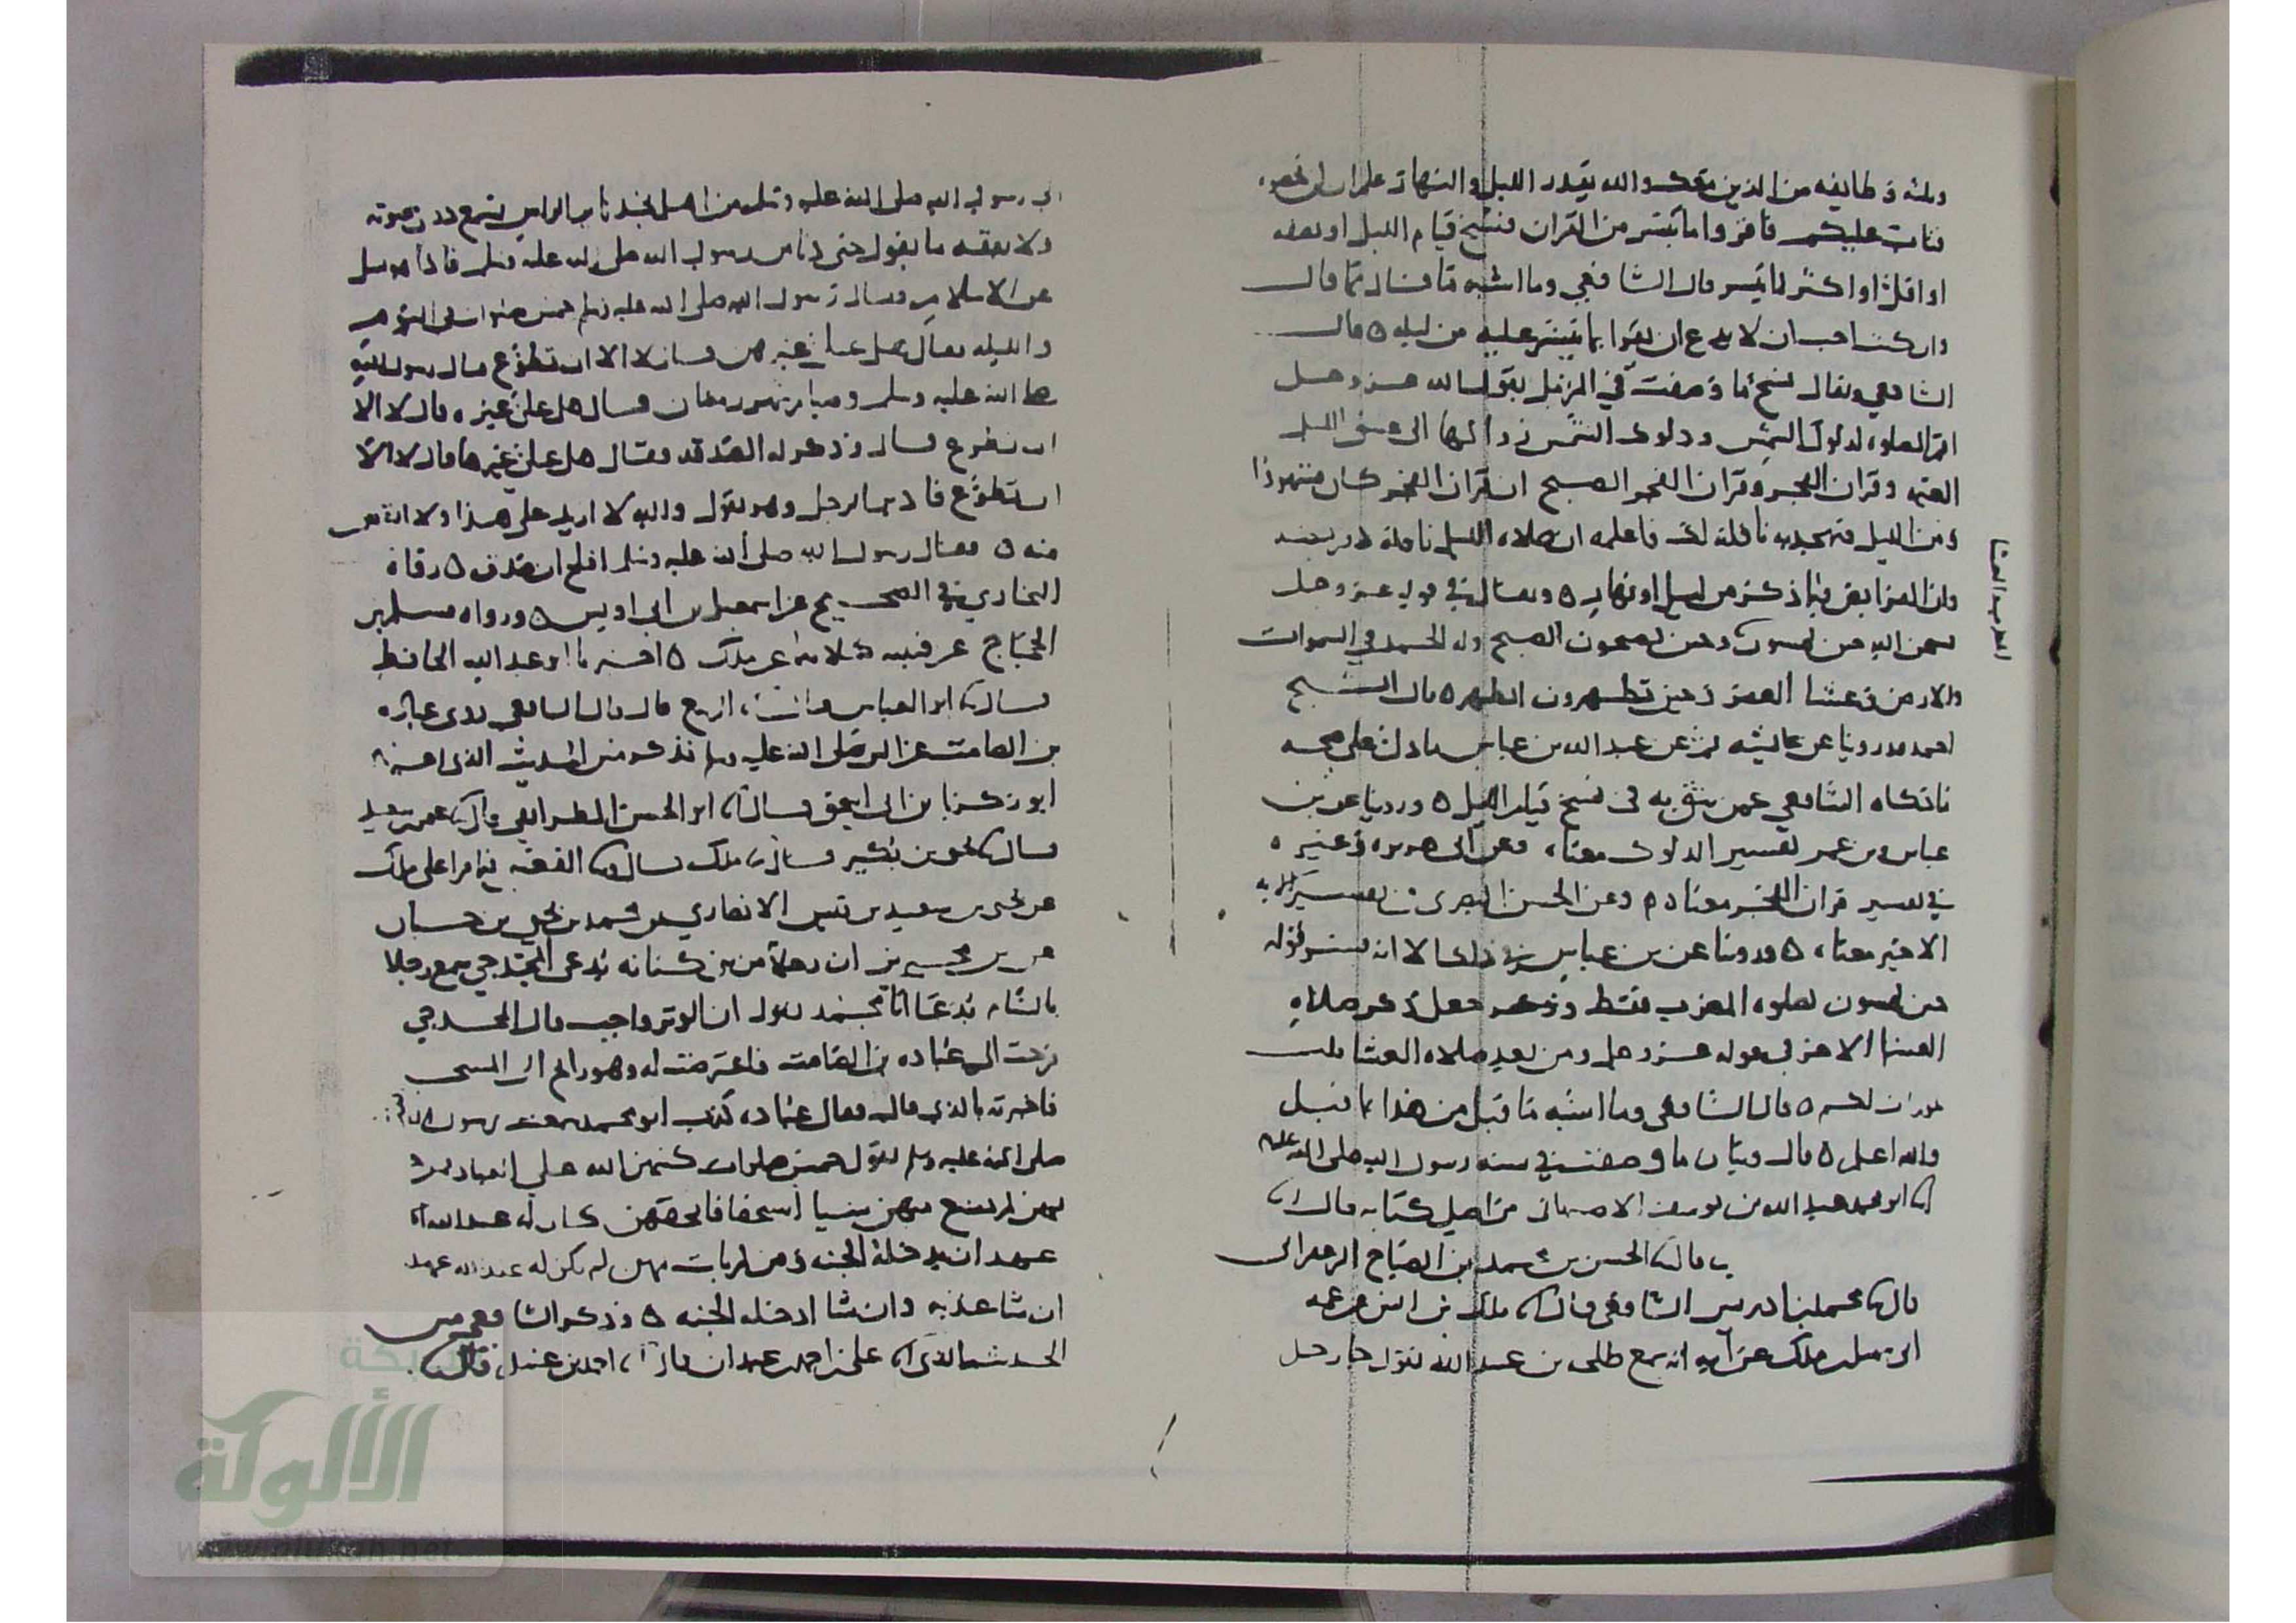 وثلثه وطائفه من الذين معك والله يقدر الليل والنهار علم ان لن تحصوه
فتاب عليكم فاقروا ما تيسر من القران فنسخ قيام الليل او نصفه
او اقل او اكثر بما تيسر قال الشافعي وما اشبه ما قال بما قال
وان كنت احب ان لا يدع ان يقوا بما تيسر عليه من ليله ٥ قال
الشافعي ويقال نسخ ما وصفت في المزمل بقول الله عز وجل
اقم الصلوه لدلوك الشمس ودلوك الشمس زوالها الى غسق الليل
العتمه وقران الفجر وقران الفجر الصبح ان قران الفجر كان مشهودا
ومن الليل فتهجد به نافلة لك فاعلمه ان صلاه الليل نافله لا فريضه
وان الفرايض فيما ذكر من ليل او نهار ٥ ويقال في قول عز وجل
سبحن الله حين تمسون وحين تصبحون الصبح وله الحمد في السموات
والارض وعشيا العصر وحين تظهرون الظهر ٥ قال الشيخ
احمد قد روينا عن عايشه ثم عن عبد الله بن عباس ما دل على صحه
ما حكاه الشافعي عمن يثق به في نسخ قيام الليل ٥ وروينا عن بن
عباس وبن عمر تفسير الدلوك معناه وعن ابي هريره وغيره
في تفسير قران الفجر معناه وعن الحسن البصري في تفسير الايه
الاخير معناه ٥ وروينا عن بن عباس في ذلك الا انه فسر قوله
حين تمسون بصلوه المغرب فقط وجعل ذكر صلاه
العشا الاخر في قوله عز وجل ومن بعد صلاه العشا ثلث
عورات لكم ٥ قال الشافعي وما اشبه ما قيل من هذا بما قيل
والله اعلم ٥ قال وبيان ما وصفت في سنه رسول الله صلى الله عليه
انا ابو محمد عبد الله بن يوسف الاصبهاني من اصل كتابه قال انا
قال نا الحسن بن محمد بن الصباح الزعفراني
قال نا محمد بن ادريس الشافعي قال نا ملك بن انس عن عمه
ابي سهيل بن ملك عن ابيه انه سمع طلحه بن عبيد الله يقول جا رجل
المغرب العشا
الى رسول الله صلى الله عليه وسلم من اهل نجد ثاير الراس نسمع دوي صوته
ولا نفقه ما يقول حتى دنا من رسول الله صلى الله عليه وسلم فاذا هو يسل
عن الاسلام فقال رسول الله صلى الله عليه وسلم خمس صلوات في اليوم
والليله فقال هل علي غيرهن فقال لا الا ان تطوع قال رسول الله
صلى الله عليه وسلم وصيام شهر رمضان فقال هل علي غيره قال لا الا
ان تطوع قال وذكر له الصدقه فقال هل علي غيرها قال لا الا
ان تطوع فادبر الرجل وهو يقول والله لا ازيد على هذا ولا انقص
منه ٥ فقال رسول الله صلى الله عليه وسلم افلح ان صدق ٥ رواه
البخاري في الصحيح عن اسمعيل بن ابي اويس ٥ ورواه مسلم بن
الحجاج عن قتيبه كلاهما عن ملك ٥ اخبرنا ابو عبد الله الحافظ
قال نا ابو العباس قال انا الربيع قال قال الشافعي روى عباده
بن الصامت عن النبي صلى الله عليه وسلم فذكر من الحديث الذي اخبرنا
ابو زكريا بن ابي اسحق قال نا ابو الحسن الطرايفي قال نا عثمن بن سعيد
قال نا يحيى بن بكير قال نا ملك قال ونا القعنبي فيما قرا على ملك
عن يحيى بن سعيد بن قيس الانصاري عن محمد بن يحيى بن حبان
عن بن محيريز ان رجلا من بني كنانه يدعى المخدجي سمع رجلا
بالشام يدعى ابا محمد يقول ان الوتر واجب قال المخدجي
فرحت الى عباده بن الصامت فاعترضت له وهو رايح الى المسجد
فاخبرته بالذي قال فقال عباده كذب ابو محمد سمعت رسول الله
صلى الله عليه وسلم يقول خمس صلوات كتبهن الله على العباد فمن جا
بهن لم يضيع منهن شيا استخفافا بحقهن كان له عند الله
عهد ان يدخله الجنه ومن لم يات بهن لم يكن له عند الله عهد
ان شا عذبه وان شا ادخله الجنه ٥ وذكر الشافعي من
الحديث الذي انا علي بن احمد بن عبدان قال نا احمد بن عبيد قال نا
شبكة
الألوكة
www.alukah.net